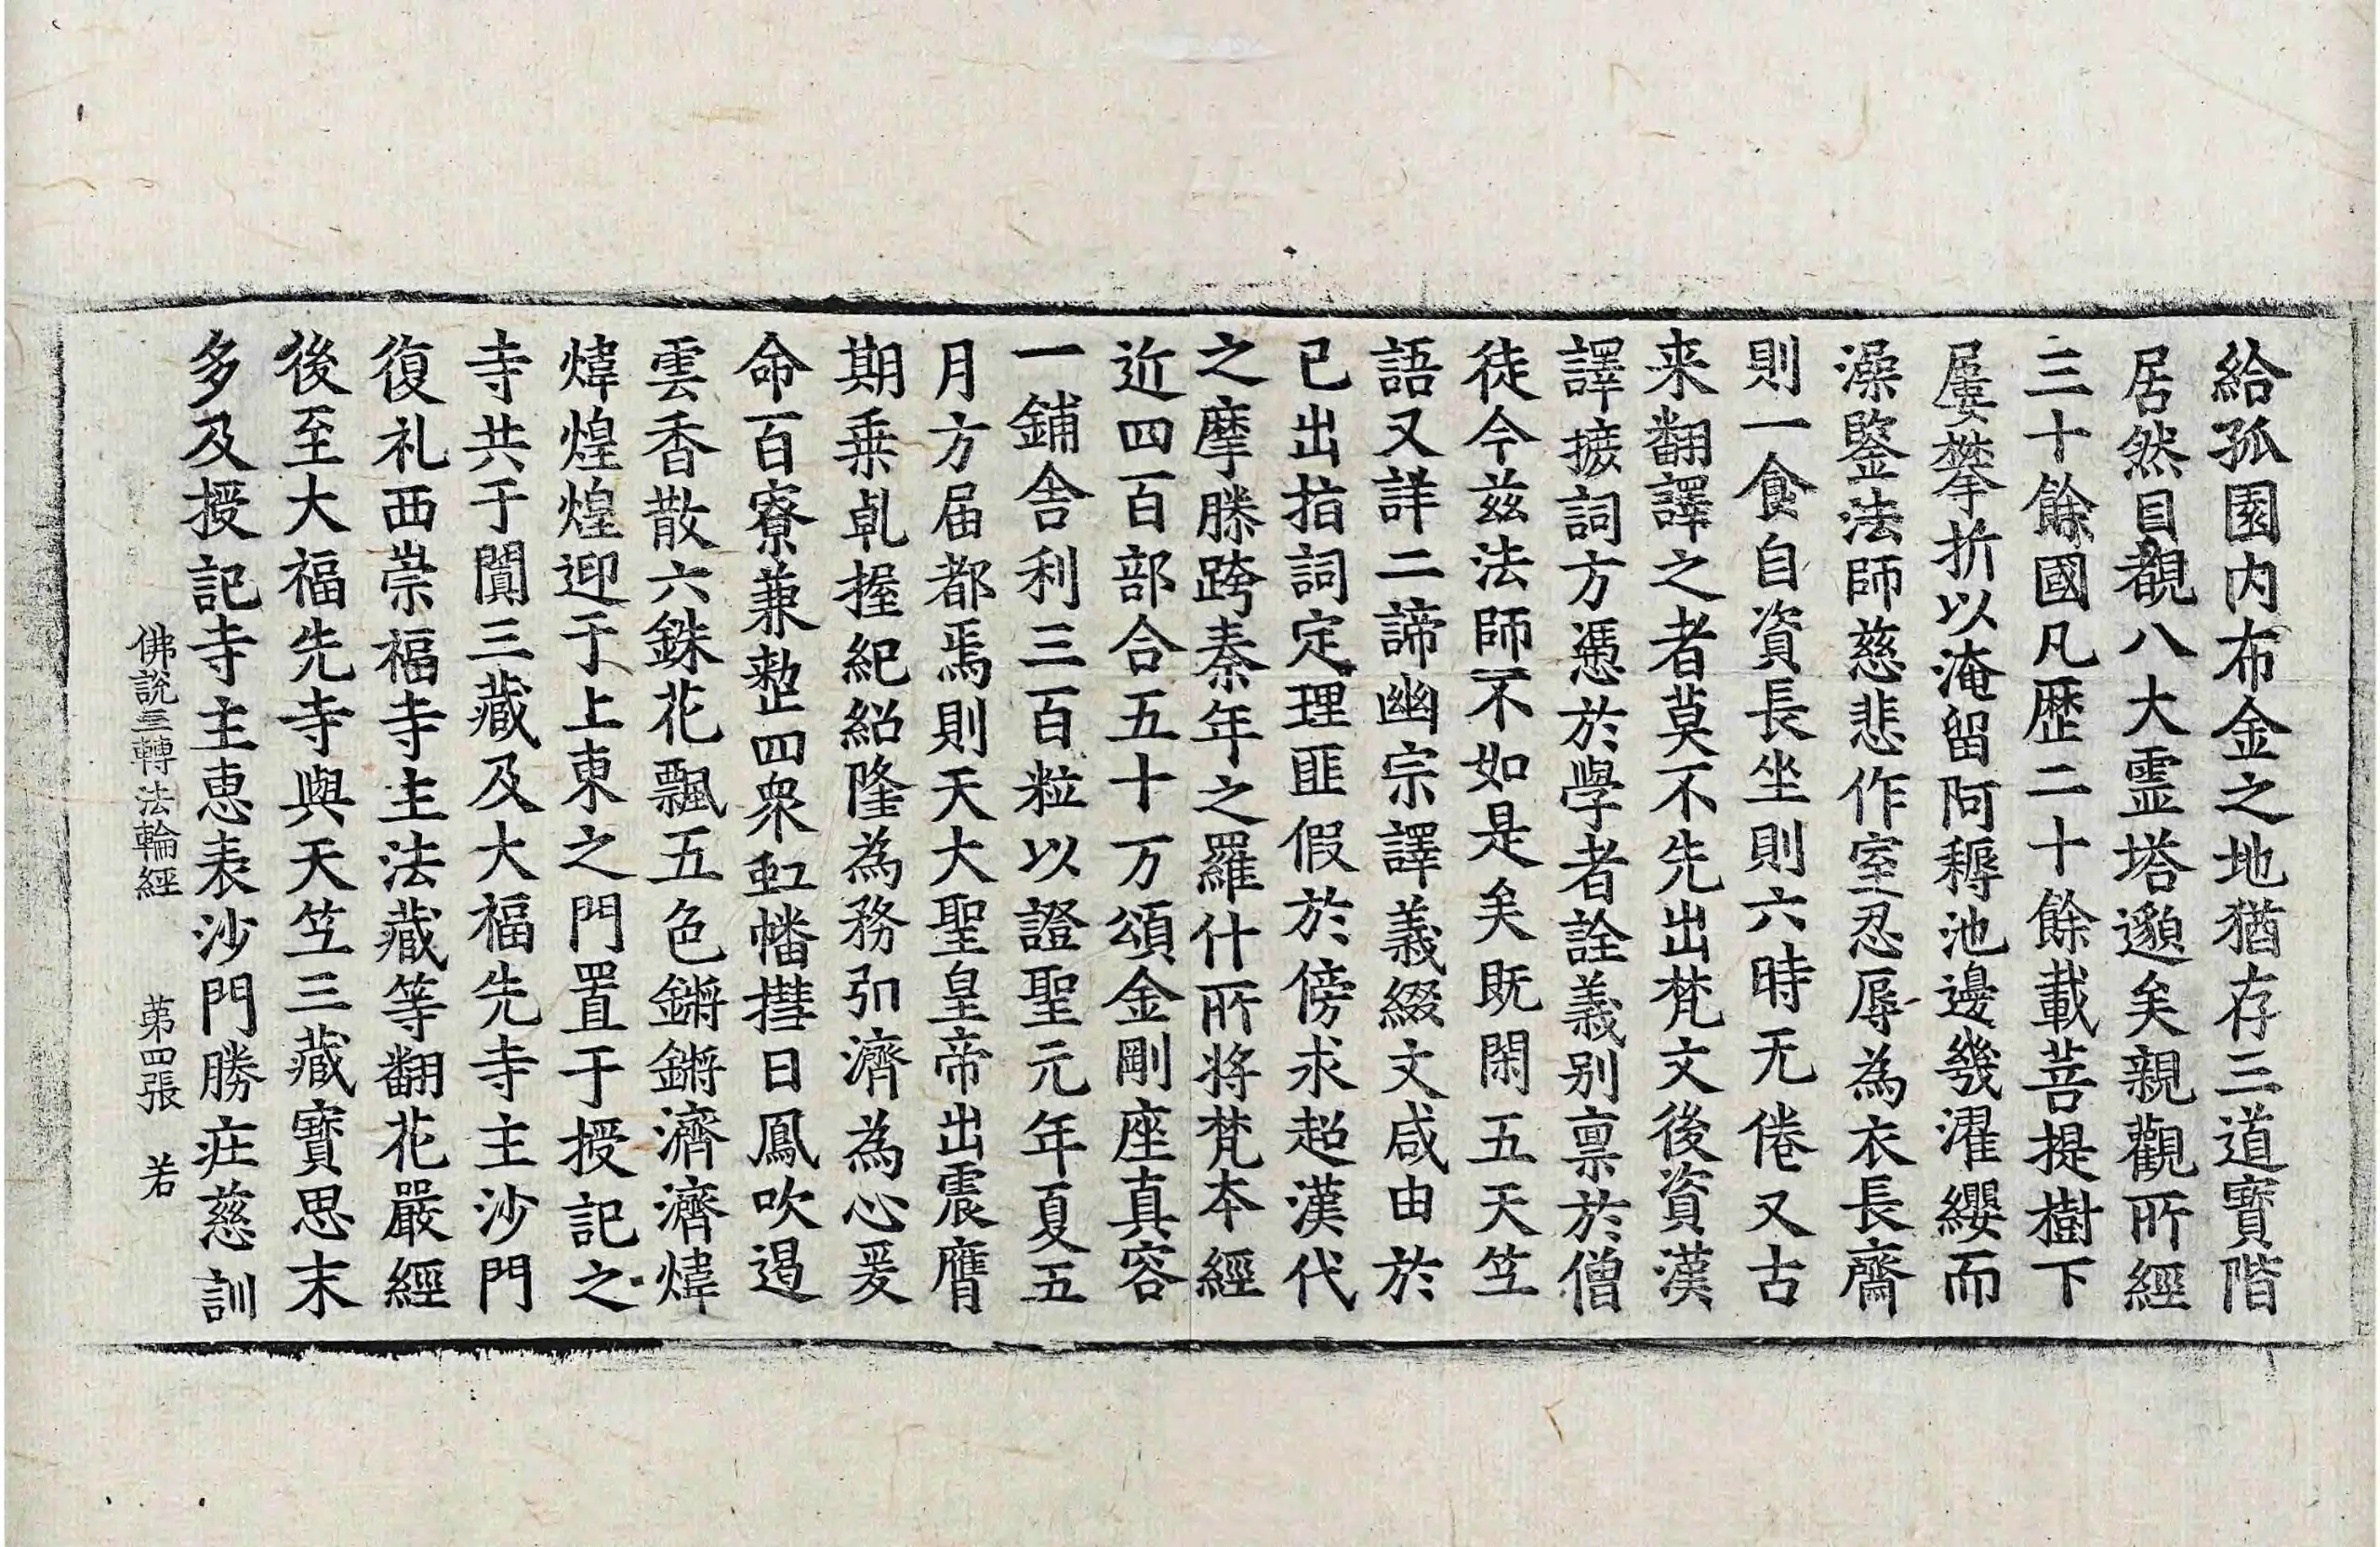 給孤園内布金之地猶存三道寶階
居然目覩八大霊塔邈矣親觀所經
三十餘國凡歷二十餘載菩提樹下
屢攀折以淹留阿耨池邊幾濯纓而
澡鑒法師慈悲作室忍辱為衣長齋
則一食自資長坐則六時无倦又古
来翻譯之者莫不先出梵文後資漢
譯摭詞方憑於學者詮義别禀於僧
徒今兹法師不如是矣既閑五天笁
語又詳二諦幽宗譯義綴文咸由於
已出指詞定理匪假於傍求超漢代
之摩滕跨秦年之羅什所将梵本經
近四百部合五十万頌金剛座真容
一鋪舎利三百粒以證聖元年夏五
月方届都焉則天大聖皇帝出震膺
期乗乹握紀紹隆為務弘濟為心爰
命百寮兼整四衆虹幡㩲日鳳吹遏
雲香散六銖花飄五色鏘鏘濟濟煒
煒煌煌迎于上東之門置于授記之
寺共于闐三藏及大福先寺主沙門
復礼西崇福寺主法藏等翻花嚴經
後至大福先寺與天笁三藏寶思末
多及授記寺主恵表沙門勝莊慈訓
佛說三轉法輪經 苐四張 若